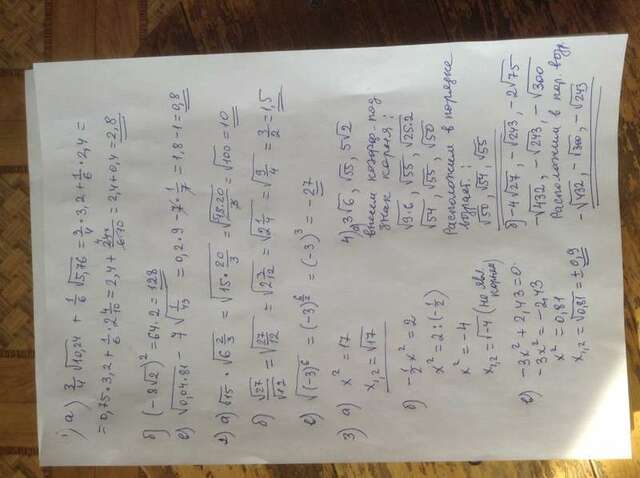 1) а) 3/4 √10,24 + 1/6 √5,76 = 3/4 · 3,2 + 1/6 · 2,4 =
= 0,75 · 3,2 + 1/6 · 2 4/10 = 2,4 + 24/(6·10) = 2,4 + 0,4 = 2,8
б) (-8√2)² = 64·2 = 128
в) √0,04·81 - 7√1/43 = 0,2·9 - 7·1/7 = 1,8 - 1 = 0,8
2) а) √15 · √6 2/3 = √15 · 20/3 = √15·20/3 = √100 = 10
б) √27/√12 = √27/12 = √2 7/12 = √2 1/4 = √9/4 = 3/2 = 1,5
в) √(-3)⁶ = (-3)^6/2 = (-3)³ = -27
3) а) x² = 17
x₁,₂ = √17
б) -1/2 x² = 2
x² = 2 : (-1/2)
x² = -4
x₁,₂ = √-4 (не явл.
корнем)
в) -3x² + 2,43 = 0
-3x² = -2,43
x² = 0,81
x₁,₂ = √0,81 = ±0,9
4) а) 3√6, √55, 5√2
внесем коэфф. под
знак корня:
√9·6, √55, √25·2
√54, √55, √50
Расположим в порядке
возраст.:
√50, √54, √55
б) -4√27, -√243, -2√75
-√432, -√243, -√300
Расположим в пор. возр.
-√432, -√300, -√243